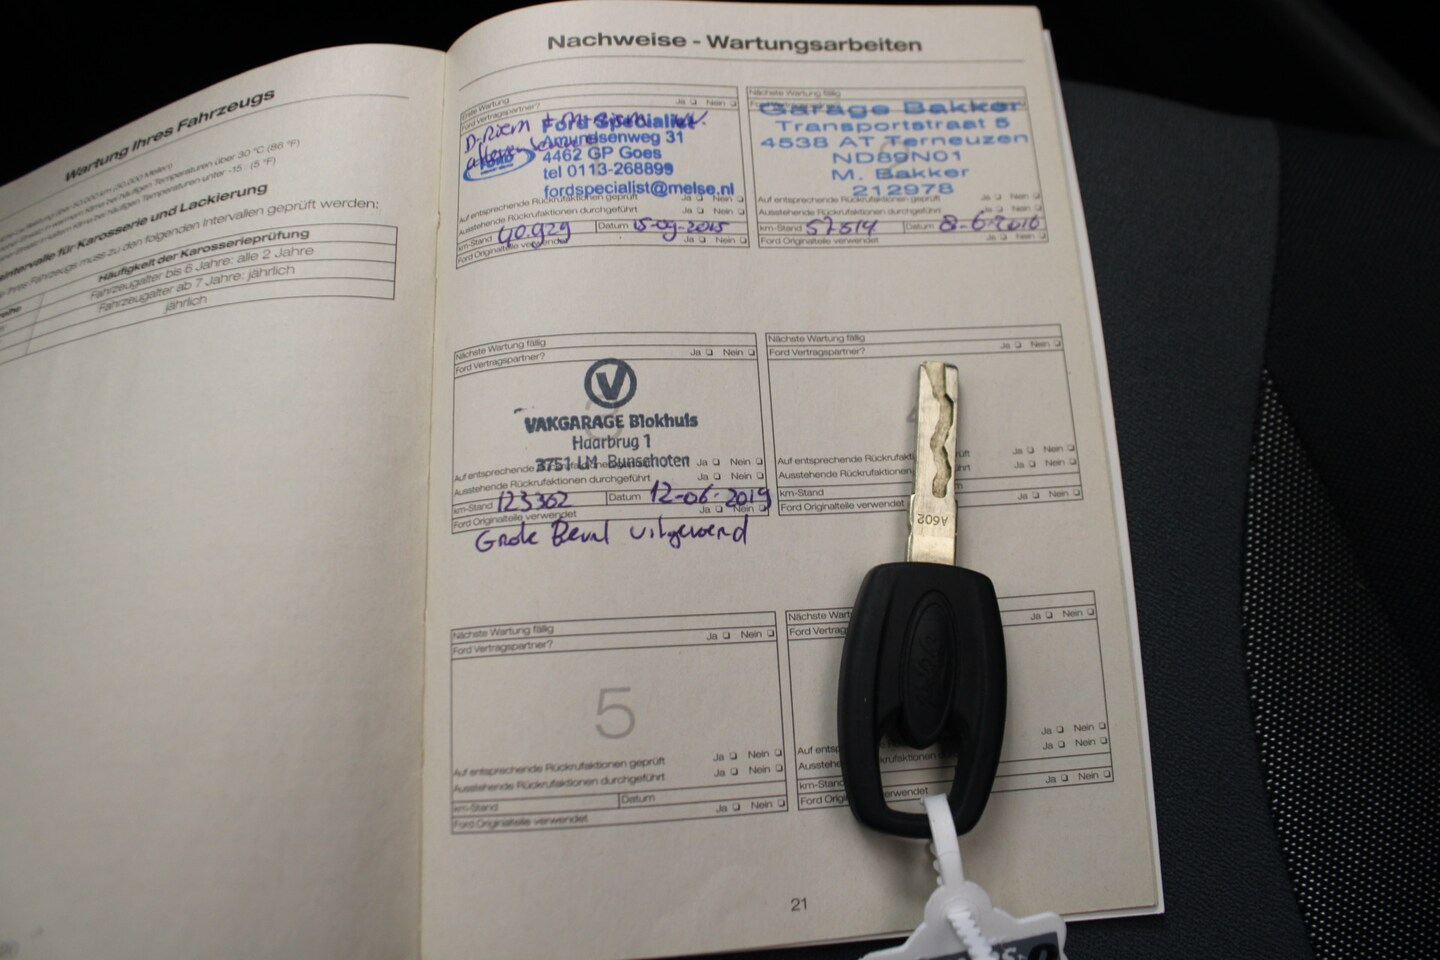 Wartung Ihres Fahrzeugs
über 30 °C (86 °F)
unter -15 (5 °F)
für Karosserie und Lackierung
Fahrzeugs muss zu den folgenden Intervallen geprüft werden:
Häufigkeit der Karosserieprüfung
Fahrzeugalter bis 6 Jahre: alle 2 Jahre
Fahrzeugalter ab 7 Jahre: jährlich
jährlich
Nachweise - Wartungsarbeiten
Erste Wartung
Ford Vertragspartner? Ja Nein
Ford Specialist
Amundsenweg 31
4462 GP Goes
tel 0113-268899
fordspecialist@melse.nl
Auf entsprechende Rückrufaktionen geprüft Ja Nein
Ausstehende Rückrufaktionen durchgeführt Ja Nein
km-Stand 40.929 Datum 15-09-2015
Ford Originalteile verwendet Ja Nein
Nächste Wartung fällig
Garage Bakker
Transportstraat 5
4538 AT Terneuzen
ND89N01
M. Bakker
212978
Auf entsprechende Rückrufaktionen geprüft Ja Nein
Ausstehende Rückrufaktionen durchgeführt Ja Nein
km-Stand 57514 Datum 8-6-2016
Ford Originalteile verwendet Ja Nein
Nächste Wartung fällig
Ford Vertragspartner? Ja Nein
V
VAKGARAGE Blokhuis
Haarbrug 1
3751 LM Bunschoten
Auf entsprechende Rückrufaktionen geprüft Ja Nein
Ausstehende Rückrufaktionen durchgeführt Ja Nein
km-Stand 123362 Datum 12-06-2019
Ford Originalteile verwendet Ja Nein
Grote Beurt uitgevoerd
Nächste Wartung fällig
Ford Vertragspartner? Ja Nein
Auf entsprechende Ja Nein
Ausstehende Rückrufaktionen Ja Nein
km-Stand
Ford Originalteile verwendet Ja Nein
A602
Nächste Wartung fällig
Ford Vertragspartner? Ja Nein
5
Auf entsprechende Rückrufaktionen geprüft Ja Nein
Ausstehende Rückrufaktionen durchgeführt Ja Nein
km-Stand Datum
Ford Originalteile verwendet Ja Nein
Nächste
Ja Nein
Auf Ja Nein
Ja Nein
km-Stand
Ford Ja Nein
21